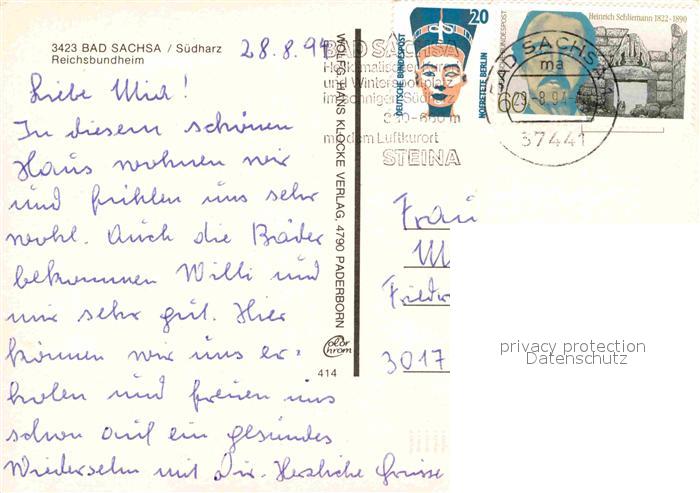 3423 BAD SACHSA / Südharz
Reichsbundheim
28.8.94
Liebe Mia!
In diesem schönen
Haus wohnen wir
und fühlen uns sehr
wohl. Auch die Bäder
bekommen Willi und
mir sehr gut. Hier
können wir uns er-
holen und freuen uns
schon auf ein gesundes
Wiedersehn mit Dir. Herzliche Grüsse
WOLFGANG HANS KLOCKE VERLAG, 4790 PADERBORN
Color
chrom
414
BAD SACHSA
Heilklimatischer
und Wintersportplatz
im sonnigen Südharz
330-660 m
mit dem Luftkurort
STEINA
20
DEUTSCHE BUNDESPOST
NOFRETETE BERLIN
DEUTSCHE BUNDESPOST
Heinrich Schliemann 1822-1890
60
BAD SACHSA
ma
29.-8.94
37441
Frau
M
Frieder
3017
privacy protection
Datenschutz